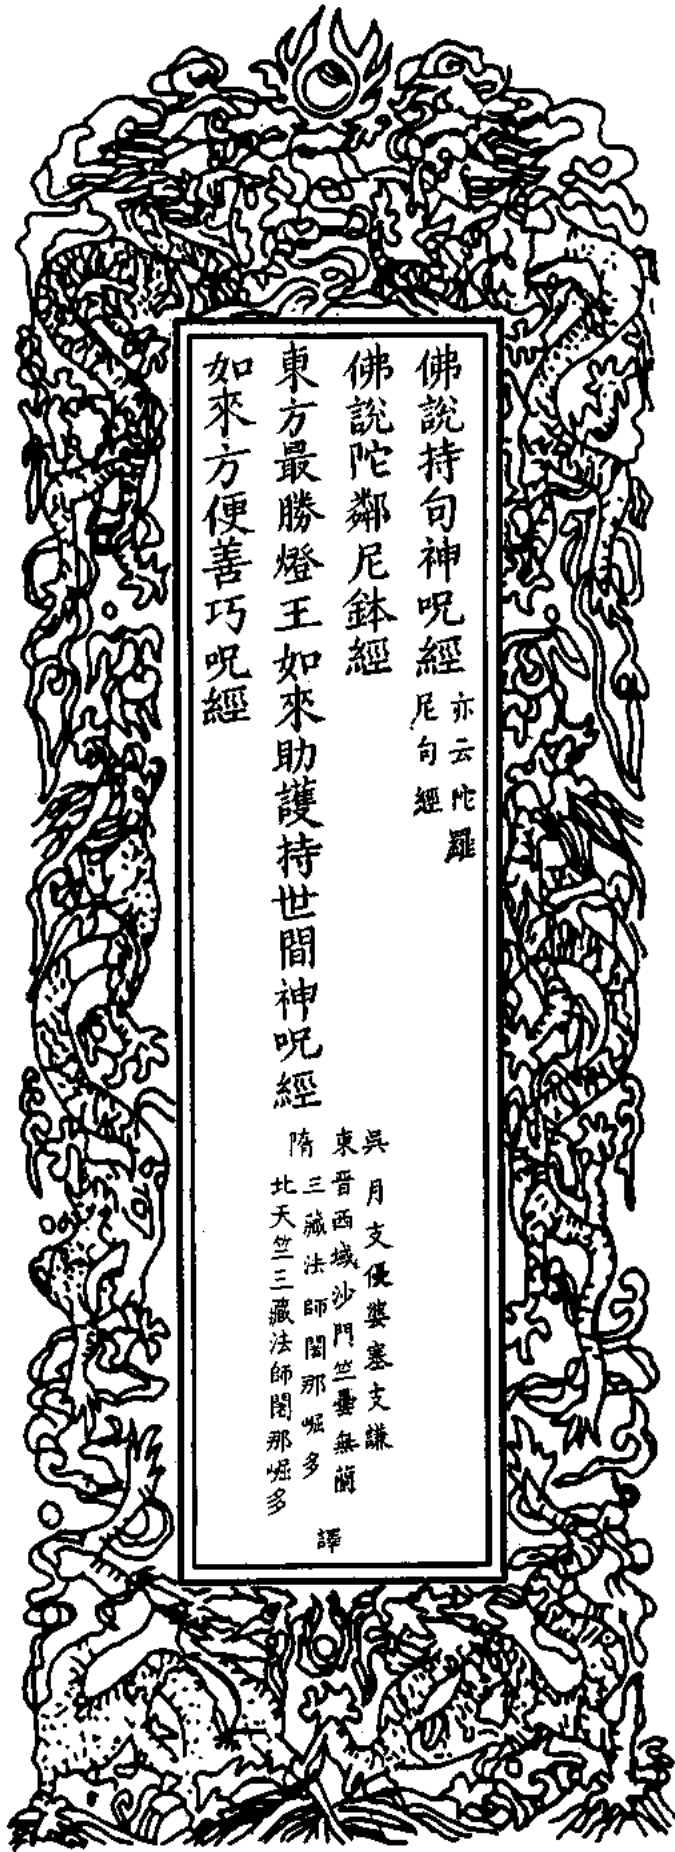 佛說持句神呪經
亦云陀羅
尼句經
佛說陀鄰尼鉢經
東方最勝燈王如來助護持世間神呪經
如來方便善巧呪經
吳月支優婆塞支謙
東晉西域沙門竺曇無蘭
隋三藏法師闍那崛多
北天竺三藏法師闍那崛多
譯